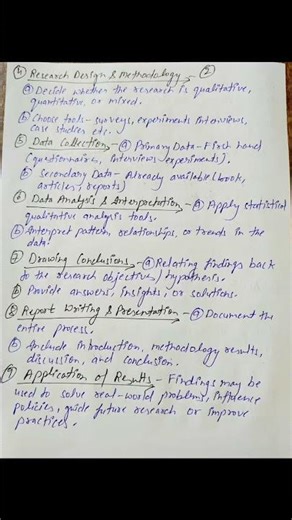 ④ Research Design & Methodology - ②
ⓐ Decide whether the research is qualitative,
quantitative, or mixed.
ⓑ Choose tools - surveys, experiments interviews,
case studies etc.
⑤ Data Collection - ⓐ Primary Data - First hand
(questionnaires, interviews, experiments).
ⓑ Secondary Data - Already available (book,
articles, reports)
⑥ Data Analysis & Interpretation - ⓐ Apply statistical
qualitative analysis tools.
ⓑ Interpret pattern, relationships, or trends in the
data.
⑦ Drawing Conclusions - ⓐ Relating findings back
to the research objective/hypothesis.
ⓑ Provide answers, insights, or solutions.
⑧ Report Writing & Presentation - ⓐ Document the
entire process.
ⓑ Include introduction, methodology results,
discussion, and conclusion.
⑨ Application of Results - Findings may be
used to solve real-world problems, influence
policies, guide future research or improve
practices.